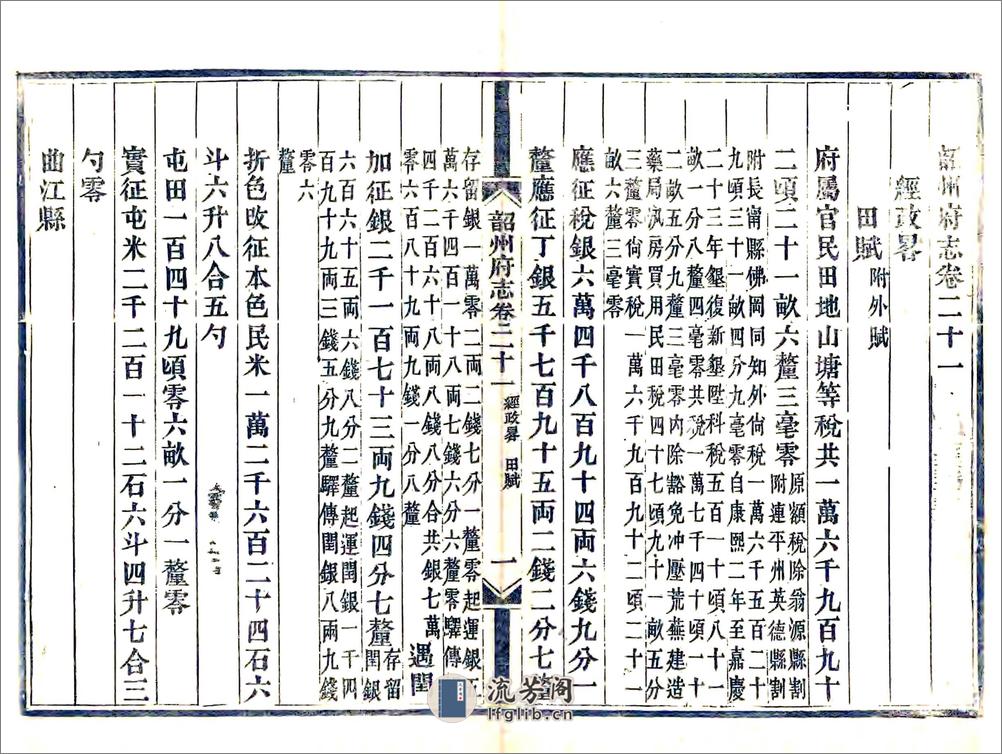 韶州府志卷二十一
經政畧
田賦附外賦
府屬官民田地山塘等稅共一萬六千九百九十
二頃二十一畝六釐三毫零
原額稅除翁源縣割
附連平州英德縣割
附長甯縣佛岡同知外尙稅一萬六千五百二十
九頃三十一畝四分九毫零自康熙二年至嘉慶
二十三年墾復新墾陞科稅五百一十頃八十一
畝一分八釐四毫零共稅一萬七千四十頃一十
二畝五分九釐三毫零內除豁免冲壓荒蕪建造
藥局汛房買用民田稅四十七頃九十一畝五分
三釐零尙實稅一萬六千九百九十二頃二十一
畝六釐三毫零
應征稅銀六萬四千八百九十四両六錢九分一
釐應征丁銀五千七百九十五両二錢二分七釐
韶州府志卷二十一 經政畧 田賦 一
存留銀一萬零二両二錢七分一釐零起運銀五
萬六千四百一十八両七錢六分六釐零驛傳
四千二百六十八両八錢八分合共銀七萬
零六百八十九両九錢一分八釐
遇閏
加征銀二千一百七十三両九錢四分七釐
存留
閏銀
六百六十五両六錢八分二釐起運閏銀一千四
百九十九両三錢五分九釐驛傳閏銀八両九錢
零六
釐
折色改征本色民米一萬二千六百二十四石六
斗六升八合五勺
屯田一百四十九頃零六畝一分一釐零
實征屯米二千二百一十二石六斗四升七合三
勺零
曲江縣
流芳閣
lfglib.cn